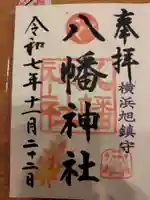 奉拝
横浜旭鎮守
八幡神社
令和七年十一月二十二日